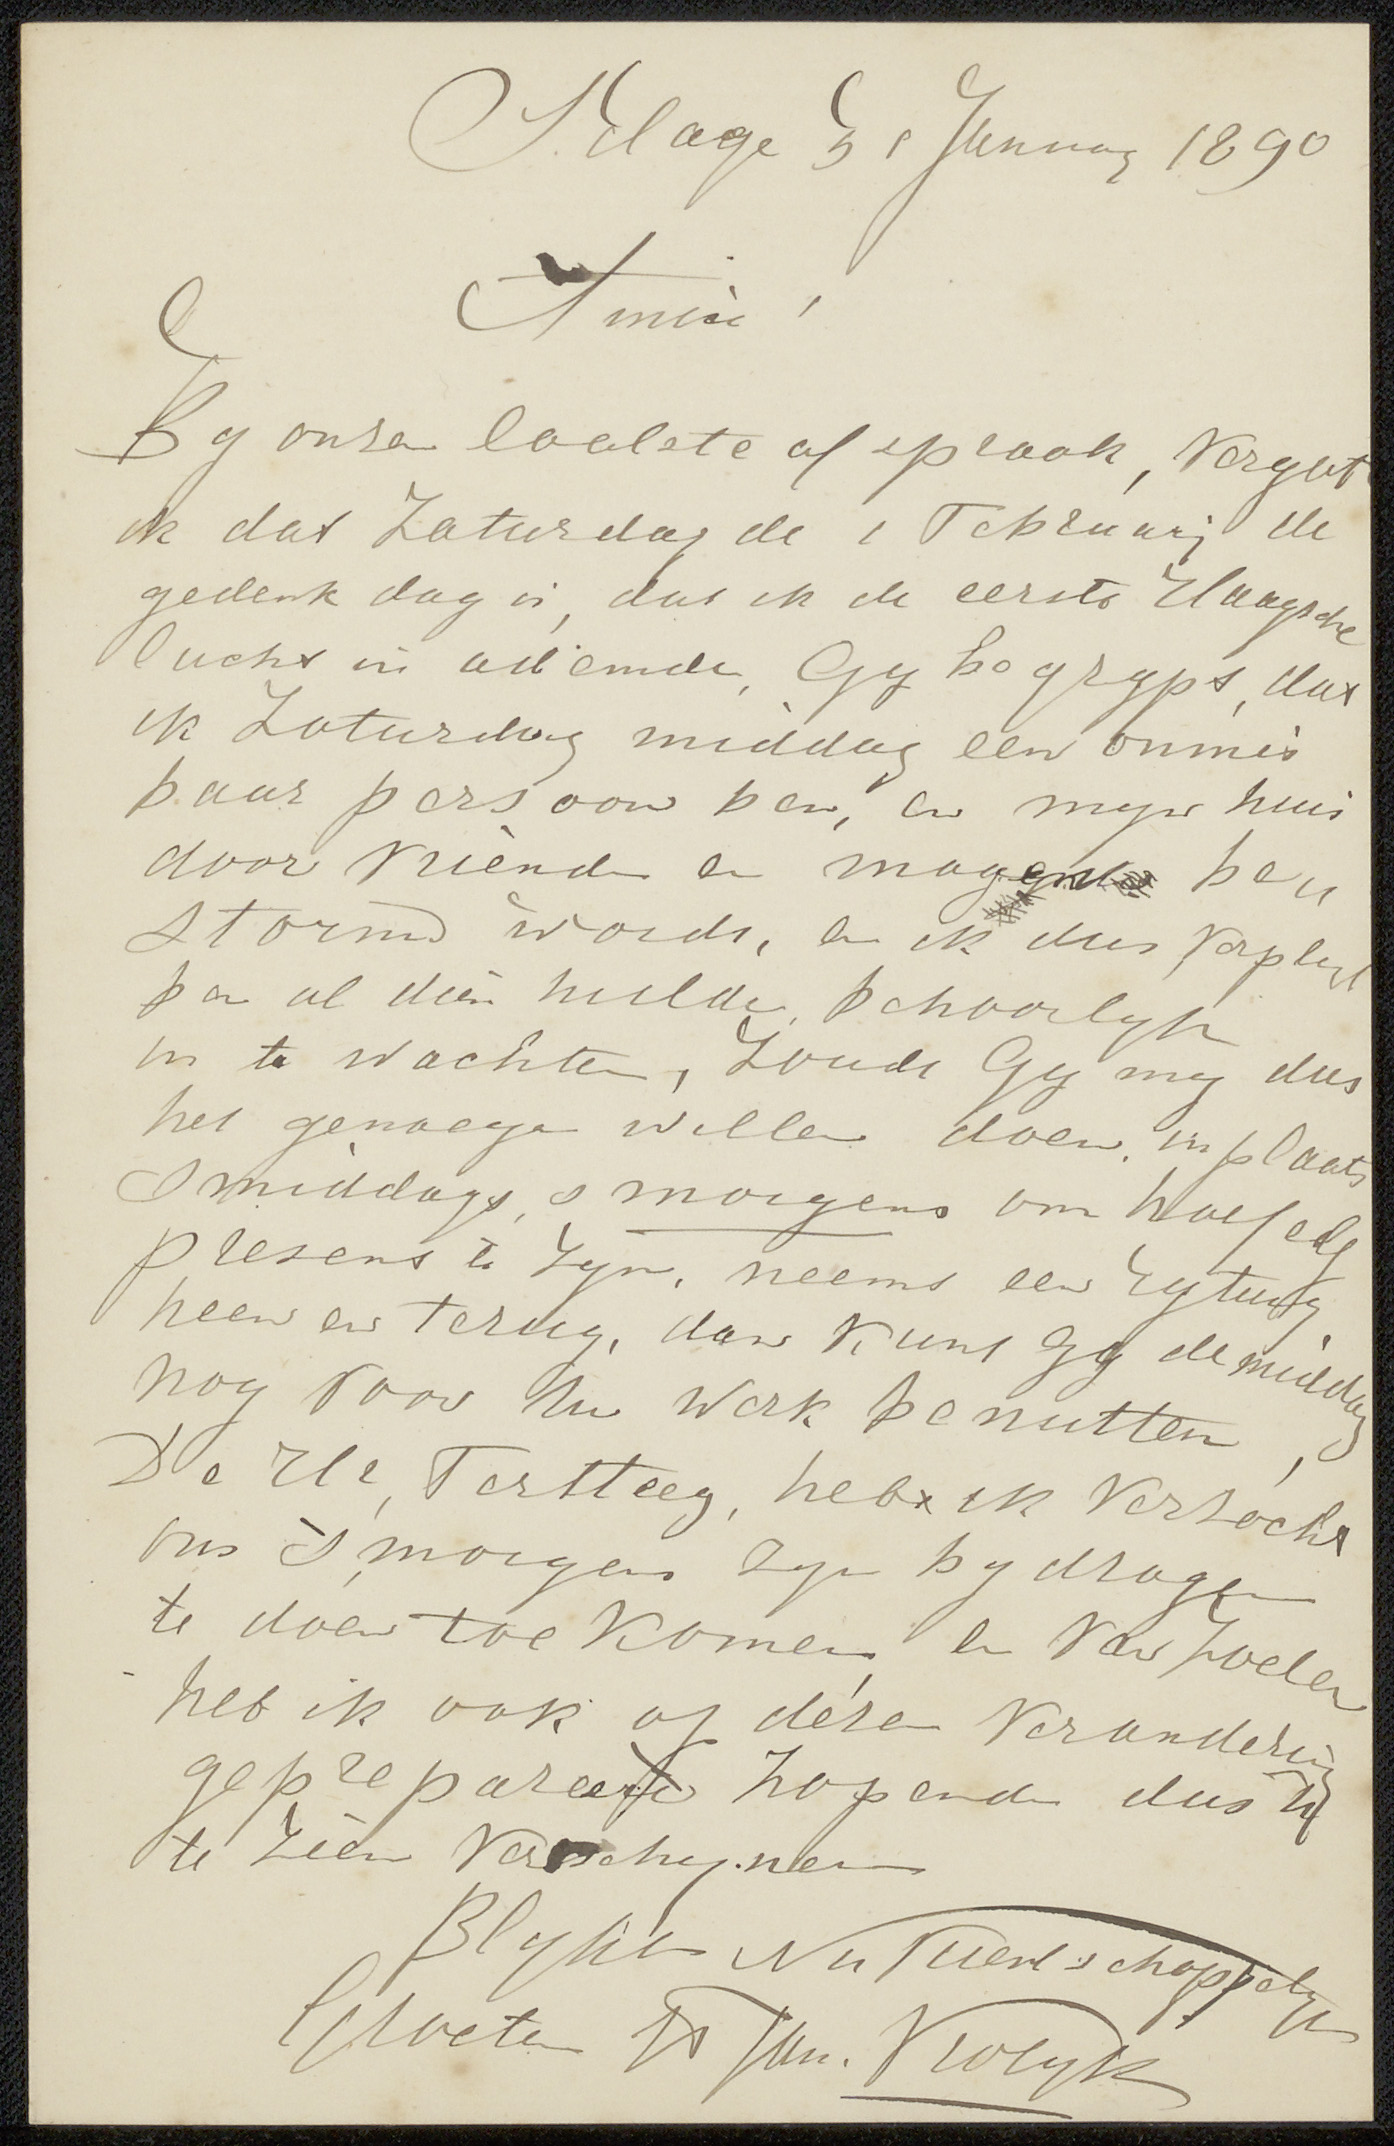 S.Hage 31 Januarij 1890
Amice!
By onze laatste afspraak, vergat
ik dat Zaturdag de 1 Februarij de
gedenk dag is, dat ik de eerste Haagsche
lucht in ademde, Gy begrypt, dat
ik Zaturdag middag een onmis
baar persoon ben, en myn huis
door vrienden en magen be
stormd wordt, en ik dus verplicht
ben al die hulde, behoorlyk
in te wachten, Zoudt Gy my dus
het genoegen willen doen, in plaats
Smiddags, s morgens om half elf
present te Zyn, neemt een rytuig
heen en terug, dan kunt gy de middag
nog voor Uw werk benutten,
De Hr, Tersteeg, heb ik verzocht
ons 's morgens zyn bydragen
te doen toekomen, en van
heb ik ook op deze verandering
geprepareerd hopende dus U
te Zien Verschynen
Blyve na Vriendschappelyke
Groeten tt Jan. Vrolyk